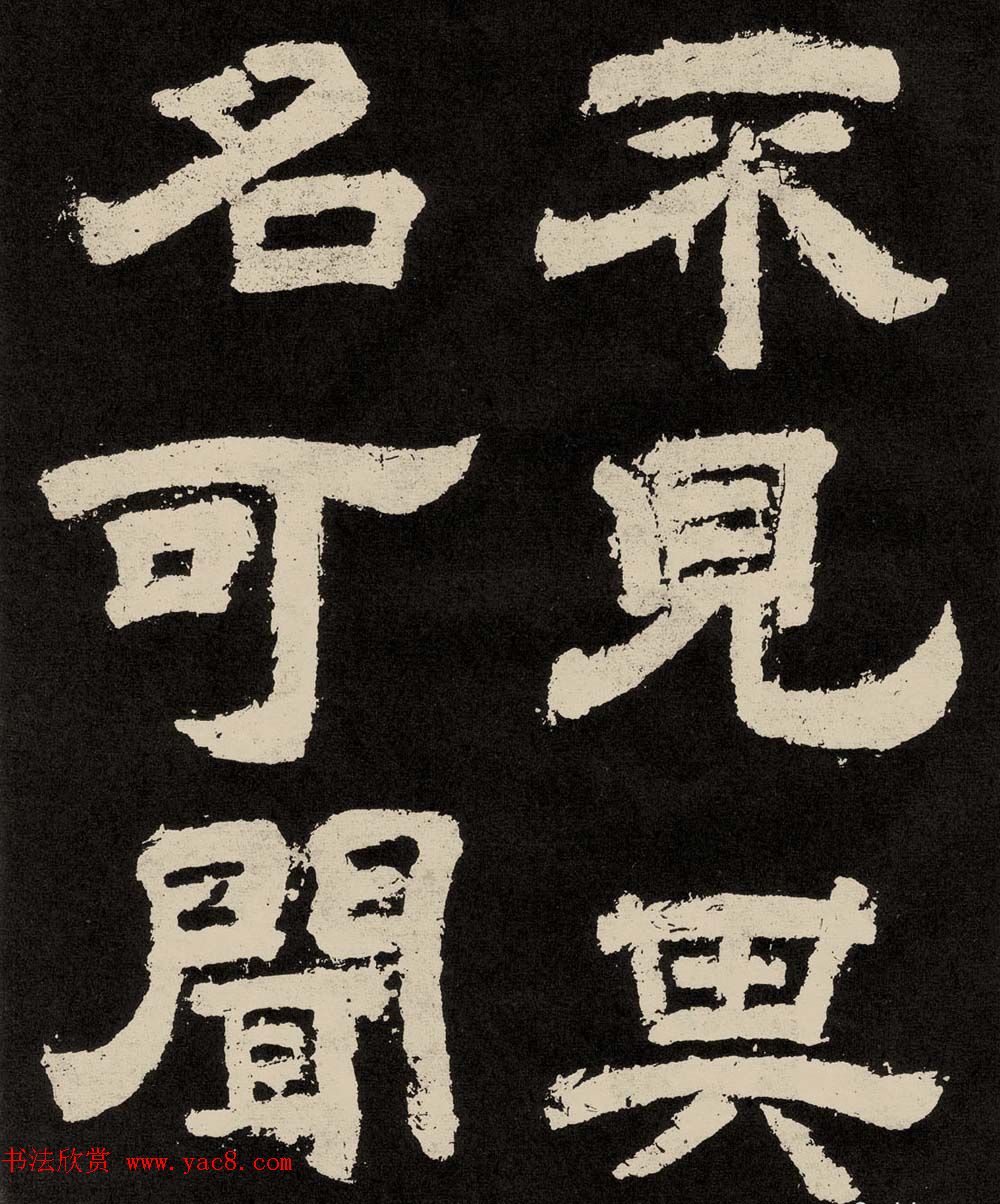 不見
名可聞
书法欣赏 www.yac8.com